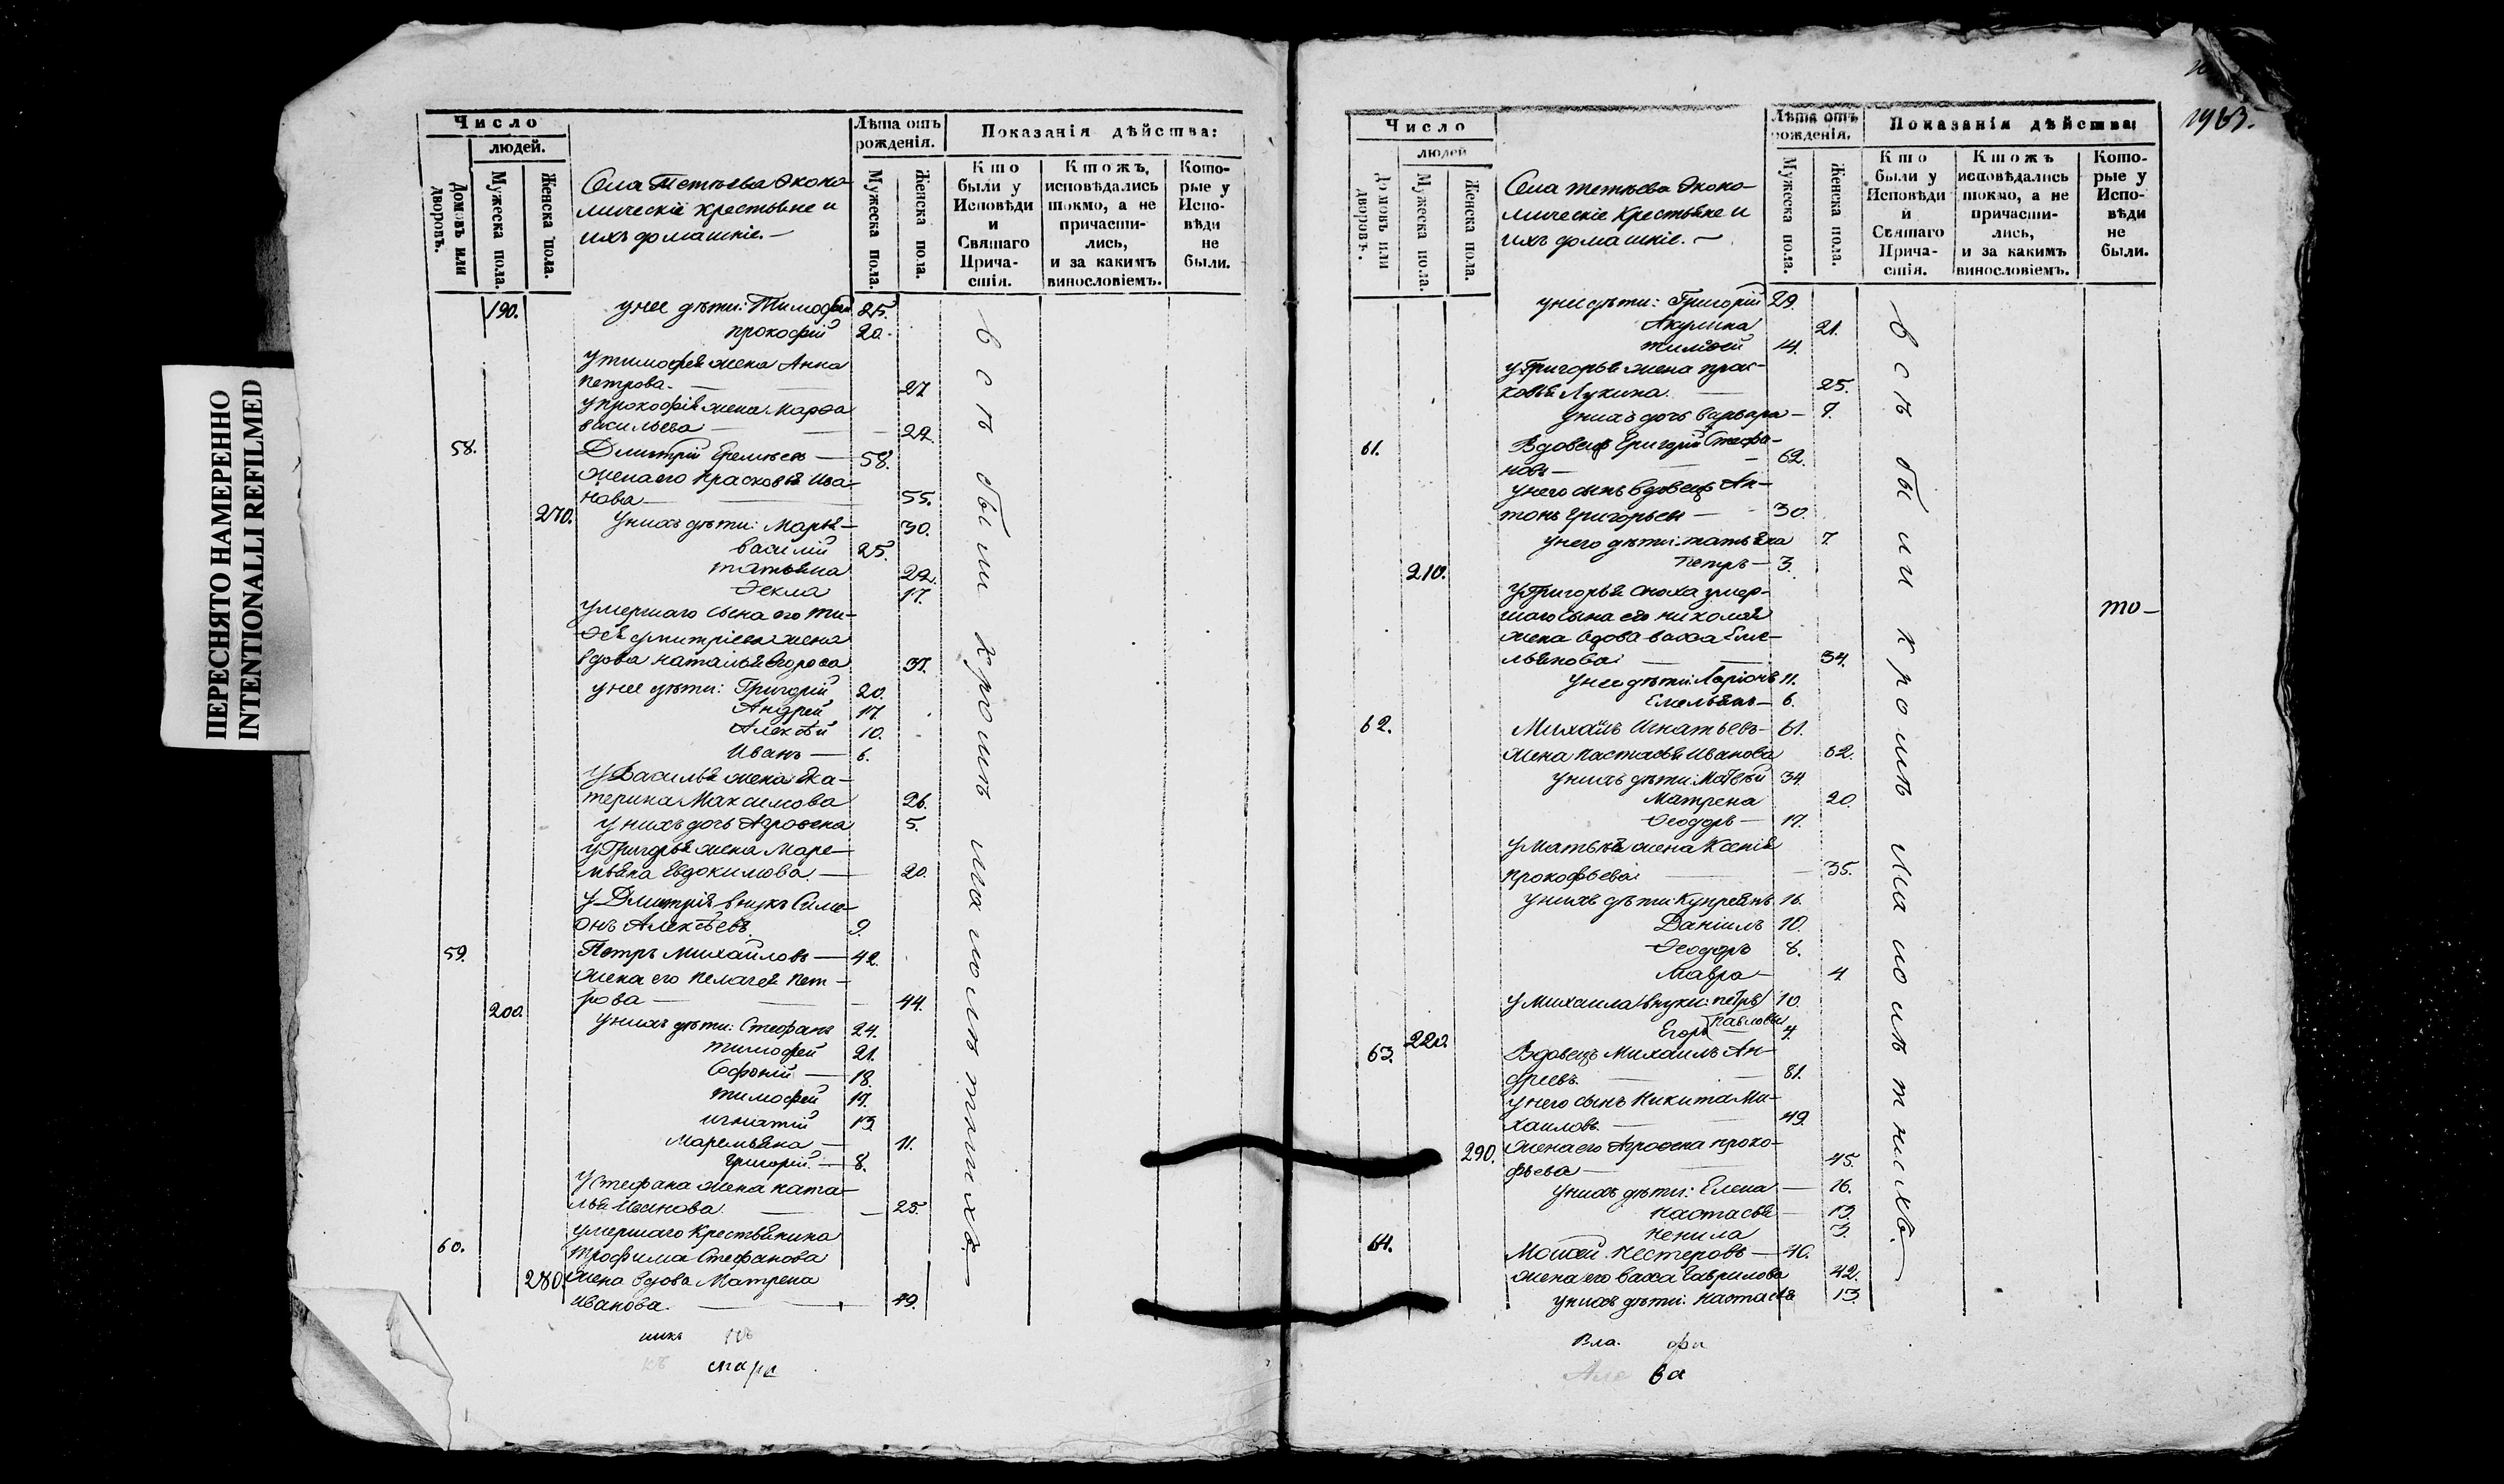 ПЕРЕСНЯТО НАМЕРЕННО
INTENTIONALLI REFILMED
Число
людей.
Домовъ или дворовъ.
Мужеска пола.
Женска пола.
Села Тетѣева Эконо-
мическіе крестьяне и
ихъ домашніе.—
Лѣта отъ рожденія.
Мужеска пола.
Женска пола.
Показанія дѣйства:
Кто были у Исповѣди и Святаго Причастія.
Ктожъ, исповѣдались токмо, а не причастились, и за какимъ винословіемъ.
Которые у Исповѣди не были.
190. у нее дѣти: Тимофей 25.
прокофій 20.
у тимофея жена Анна
петрова. — 27
у прокофія жена Марѳа
васильева — 22.
58. Дмитрій Еремѣевъ — 58.
жена его прасковья Ива-
нова — 55.
270. у нихъ дѣти: Марья — 30.
василій 25.
татьяна 22.
Ѳекла 17.
умершаго сына его
дмитріева жена
вдова наталья Егорова 37.
у нее дѣти: Григорій 20.
Андрей 17.
Алексѣй 10.
Иванъ — 6.
у Василья жена Ека-
терина Максимова 26.
у нихъ дочь Агрофена 5.
у Григорья жена Маре-
мьяна Евдокимова. — 20.
у Дмитрія внукъ Симе-
онъ Алексѣевъ. 9.
59. Петръ Михайловъ — 42.
жена его пелагея пет-
рова — 44.
200. у нихъ дѣти: Стефанъ 24.
тимофей 21.
Софоній — 18.
тимофей 17.
игнатій 13.
маремьяна — 11.
Григорій. — 8.
у Стефана жена ната-
лья Иванова. — 25.
умершаго Крестьянина
60. трофима Стефанова
280. жена вдова Матрена
иванова. — 49.
всѣ были кромѣ малолѣтнихъ.
мара
1963.
Число
людей
Домовъ или дворовъ.
Мужеска пола.
Женска пола.
Села тетѣева Эконо-
мическіе Крестьяне и
ихъ домашніе. —
Лѣта отъ рожденія.
Мужеска пола.
Женска пола.
Показанія дѣйства:
Кто были у Исповѣди и Святаго Причастія.
Ктожъ исповѣдались токмо, а не причастились, и за какимъ винословіемъ.
Которые у Исповѣди не были.
у ней дѣти: Григорій 29.
Акулина 21.
14.
у Григорья жена прас-
ковья Лукина. — 25.
у нихъ дочь варвара — 7.
61. Вдовецъ Григорій Стефа-
новъ — 62.
у него сынъ вдовецъ Ан-
тонъ Григорьевъ — 30.
у него дѣти: татьяна 7.
210. петръ — 3.
у Григорья сноха умер-
шаго сына его николая
жена вдова васса Еме-
льянова — 34.
у нее дѣти: Ларіонъ 11.
Емельянъ — 6.
62. Михайлъ Игнатьевъ — 61.
жена настасья иванова 62.
у нихъ дѣти: Матвѣй 34.
матрена 20.
Ѳеодоръ — 17.
у Матвѣя жена Ксенія
прокофьева — 35.
у нихъ дѣти: Купреянъ 16.
Даніилъ 10.
Ѳеодоръ 8.
Мавра — 4
у Михаила внуки: петръ 10.
220. Егоръ павловы 4.
63. Вдовецъ Михаилъ Ан-
дреевъ. — 81.
у него сынъ Никита Ми-
хаиловъ. — 49.
290. жена его Агрофена проко-
фьева — 45.
у нихъ дѣти: Елена — 16.
настасья — 13.
ненила 3.
64. Моисей Нестеровъ — 40.
жена его васса Гаврилова 42.
у нихъ дѣти: настасья 13.
всѣ были кромѣ малолѣтнихъ.
то—
Вла.
ва